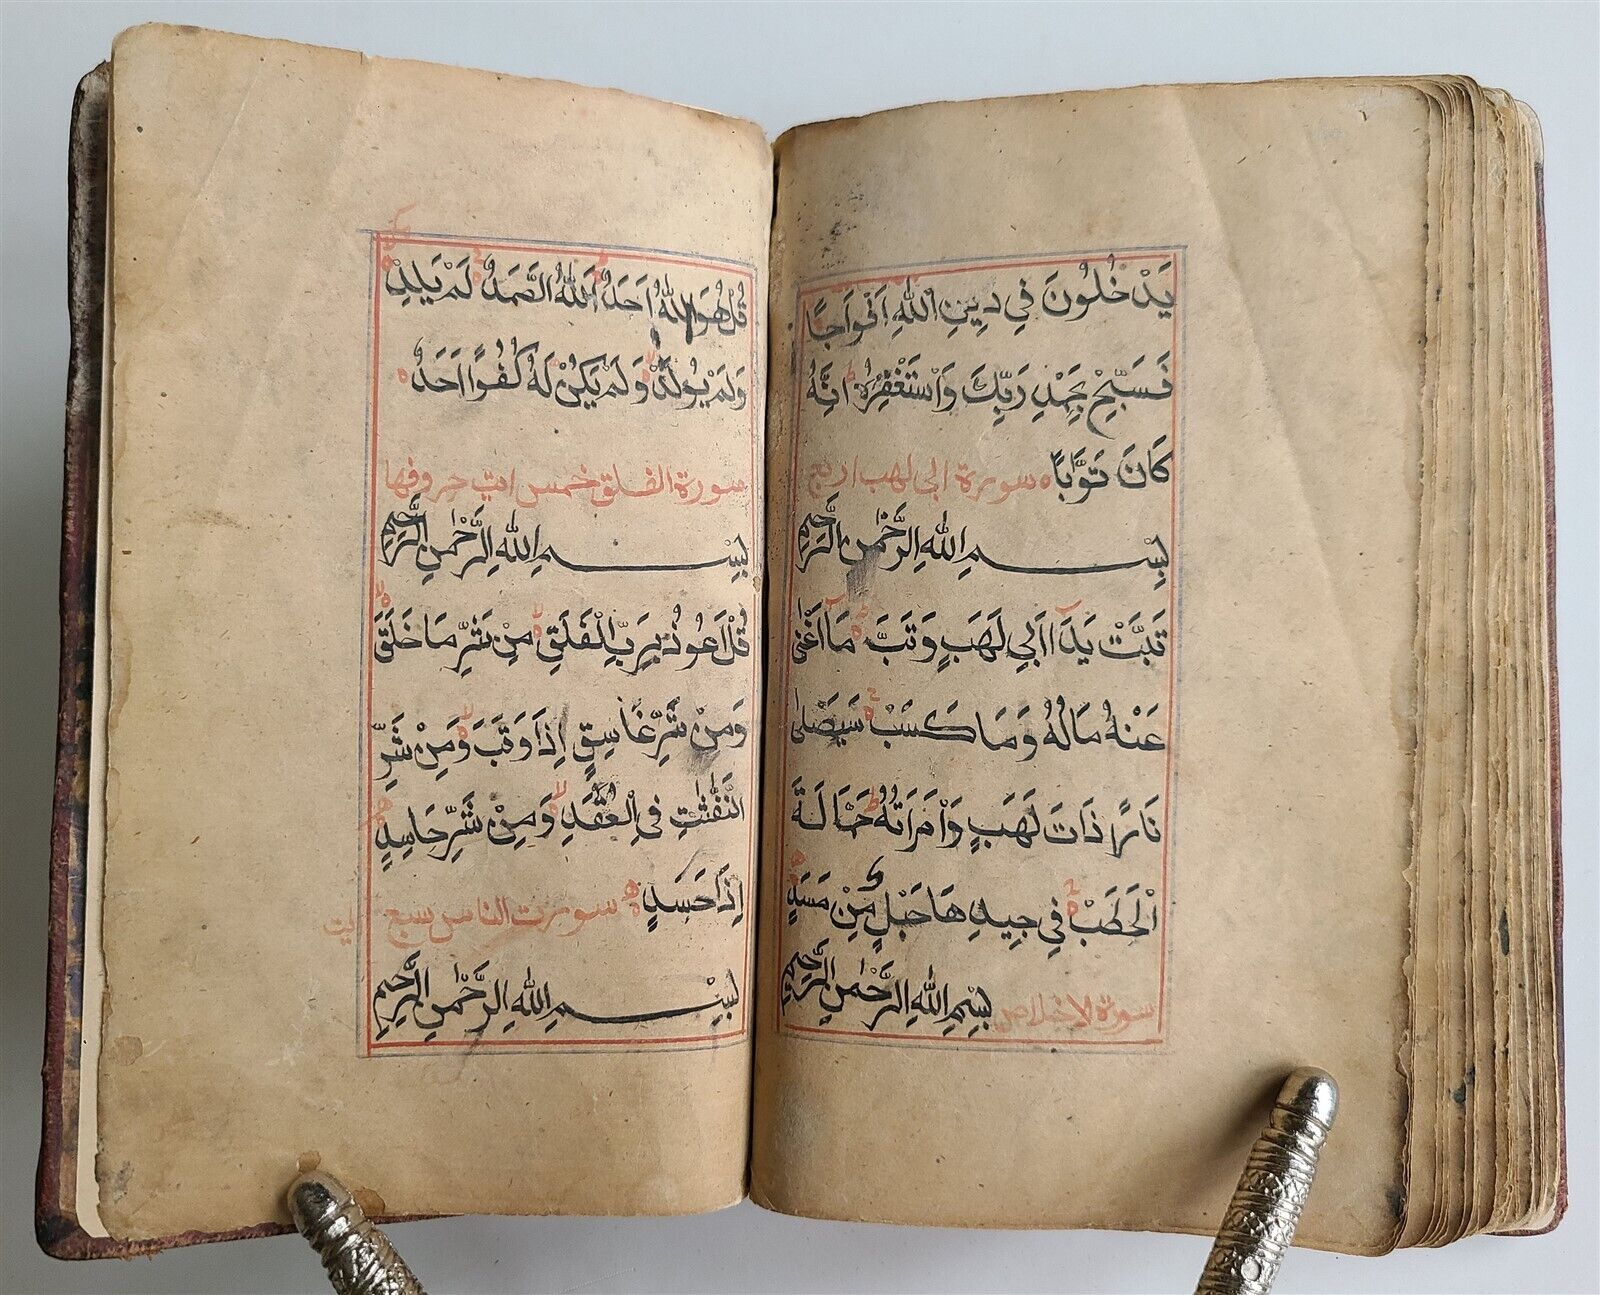 يَدْخُلُونَ فِي دِينِ اللَّهِ اَفْوَاجًا
فَسَبِّحْ بِحَمْدِ رَبِّكَ وَاسْتَغْفِرْهُ اِنَّهُ
كَانَ تَوَّابًا سورة ابی لهب اربع
بِسْمِ اللَّهِ الرَّحْمٰنِ الرَّحِيمِ
تَبَّتْ يَدَا اَبِي لَهَبٍ وَتَبَّ مَا اَغْنٰى
عَنْهُ مَالُهُ وَمَا كَسَبْ سَيَصْلٰى
نَارًا ذَاتَ لَهَبٍ وَامْرَاَتُهُ حَمَّالَةَ
الْحَطَبْ فِي جِيدِهَا حَبْلٌ مِنْ مَسَدٍ
سورة الاخلاص بِسْمِ اللَّهِ الرَّحْمٰنِ الرَّحِيمِ
قُلْ هُوَ اللَّهُ اَحَدٌ اَللَّهُ الصَّمَدُ لَمْ يَلِدْ
وَلَمْ يُولَدْ وَلَمْ يَكُنْ لَهُ كُفُوًا اَحَدٌ
سورة الفلق خمس ايت حروفها
بِسْمِ اللَّهِ الرَّحْمٰنِ الرَّحِيمِ
قُلْ اَعُوذُ بِرَبِّ الْفَلَقِ مِنْ شَرِّ مَا خَلَقَ
وَمِنْ شَرِّ غَاسِقٍ اِذَا وَقَبَ وَمِنْ شَرِّ
النَّفّٰثٰتِ فِي الْعُقَدِ وَمِنْ شَرِّ حَاسِدٍ
اِذَا حَسَدٍ سورت الناس سبع ايت
بِسْمِ اللَّهِ الرَّحْمٰنِ الرَّحِيمِ